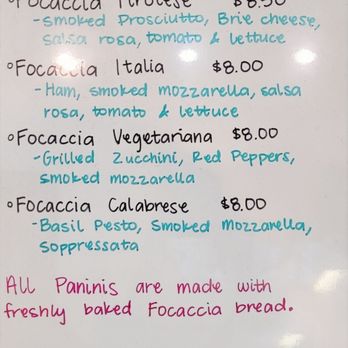 °Focaccia Tirolese $8.50
-Smoked Prosciutto, Brie cheese,
salsa rosa, tomato & lettuce
°Focaccia Italia $8.00
-Ham, smoked mozzarella, salsa
rosa, tomato & lettuce
°Focaccia Vegetariana $8.00
-Grilled Zucchini, Red Peppers,
smoked mozzarella
°Focaccia Calabrese $8.00
-Basil Pesto, Smoked Mozzarella,
Soppressata
All Paninis are made with
freshly baked Focaccia bread.